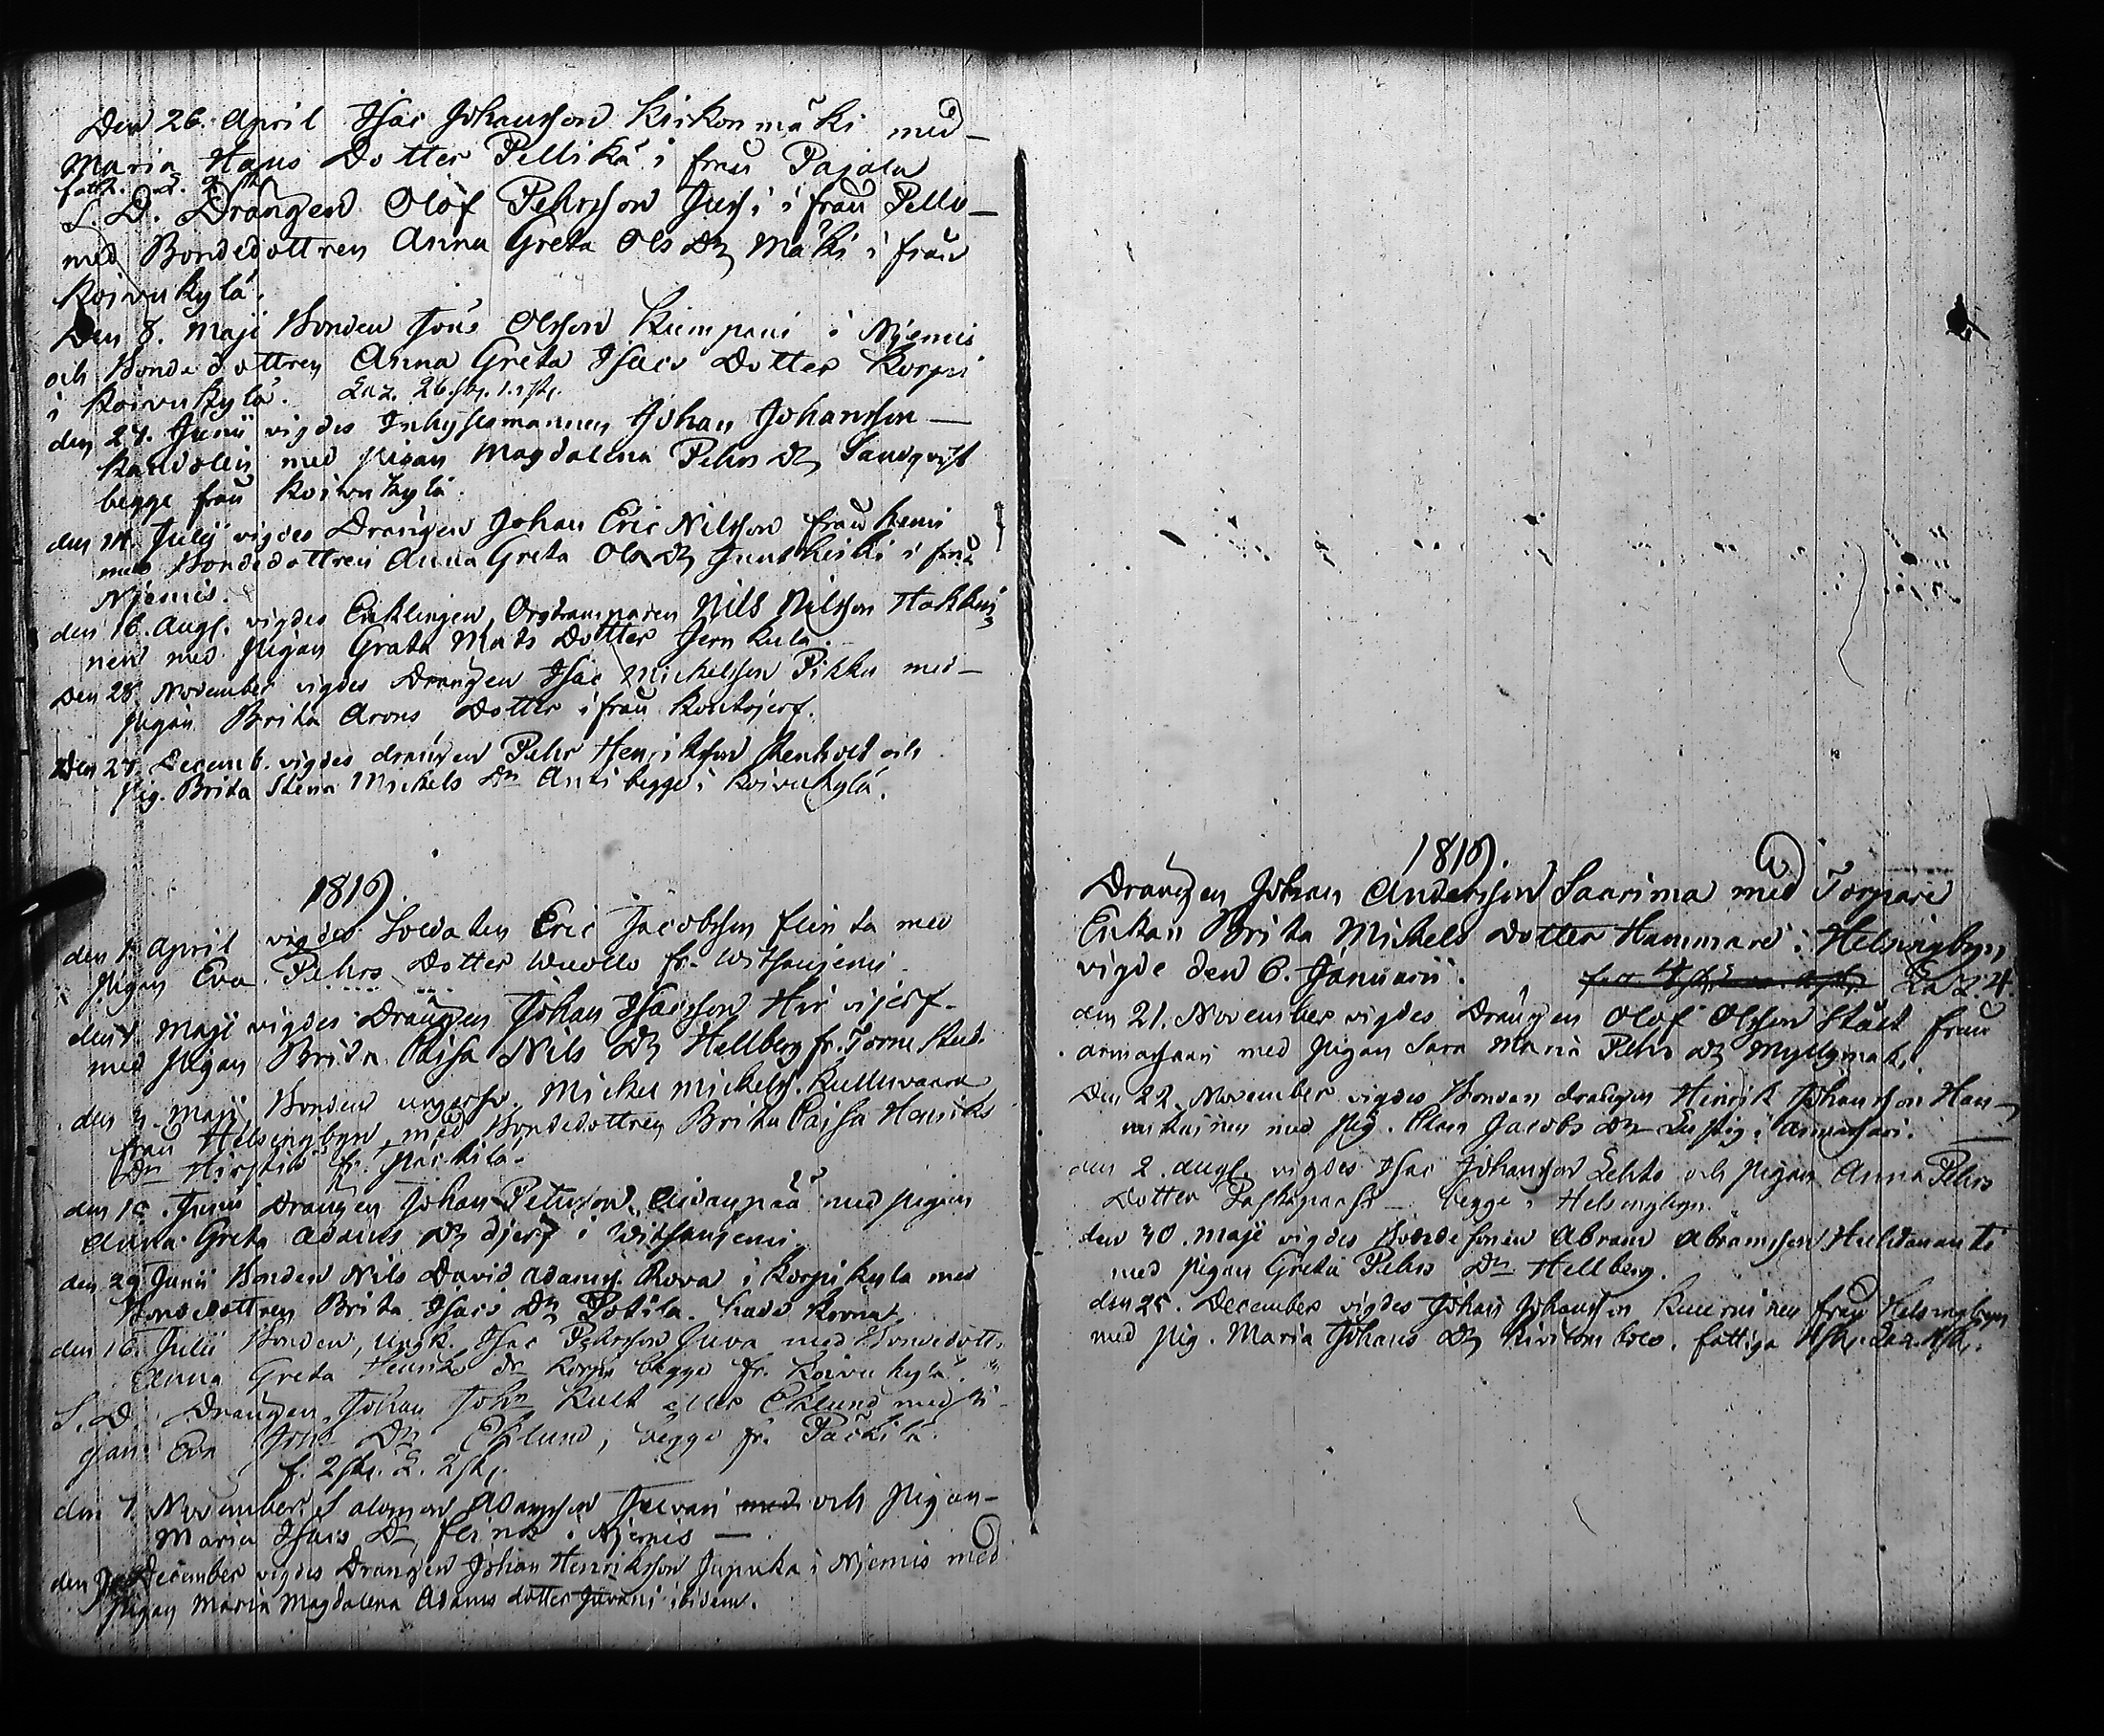 Den 26. April Isac Johansson Kirkonmäki med
Maria Hans Dotter Pellikä i från Pajala
S. D. Drängen Olof Pehrsson Jussi i från Pello
med Bondedottren Anna Greta Ols Dr Mäki i från
Koivukylä.
Den 8. Maji Bonden Jöns Olsson Kumpani i Njemis
och Bondedottren Anna Greta Isacs Dotter Korpi
i Koivukylä. Laz. 26 sk. 1. sk.
den 24. Junii vigdes Inhysesmannen Johan Johansson
Kandolin med pigan Magdalena Pehrs Dr Sandqvist
begge från Koivukylä.
den 14. Julii vigdes Drängen Johan Eric Nilsson från Kemi
med Bondedottren Anna Greta Ols Dr Juntikiski i från
Njemis.
den 16. Augt. vigdes Enklingen, Orgtramparen Nils Nilsson Hakkui
nen med pigan Greta Mats Dotter Jernkula.
Den 28. November vigdes Drängen Isac Michelsson Pikku med
pigan Brita Arons Dotter i från Kontojerf.
Den 27. Decemb. vigdes drängen Pehr Henriksson Renholt och
pig. Brita Stena Michels Dr Anti begge i Koivukylä.
1816.
den 1. April vigdes Soldaten Eric Jacobsson Flinta med
pigan Eva Pehrs Dotter Wuollo fr. Witsanjemi.
den Maji vigdes Drängen Johan Isacsson Hirvijerf
med pigan Brita Caisa Nils Dr Hellberg fr. Torne Stad.
den Maji Bonden ungersv. Michel Michelss. Kulluvaara
från Helsingbyn, med Bondedottren Brita Caisa Henriks
Dr fr. Päckilä.
den Junii Drängen Johan Petersson Aidanpää med pigan
Anna Greta Adams Dr Djerf i Witsanjemi.
den 29 Junii Bonden Nils David Adamss. Rova i Korpikyla med
Bondedottren Brita Isacs Dr Potila.
den 16. Julii Bonden, ungk. Isac Pehrsson Juva med Bondedott.
Anna Greta Henriks dr Korpi begge fr. Koivukylä.
S. D. Drängen, Johan Johns Kult eller Eklund med pi
gan Eva Johns Dr Eklund, begge fr. Päckilä.
f. 2 sk. L. 2 sk.
den 7. November Salomon Adamsson Juvani med och pigan
Maria Isacs Dr Flink i Njemis
den December vigdes Drängen Johan Henriksson Jupukka i Njemis med
pigan Maria Magdalena Adams dotter Juvani ibidem.
1816.
Drängen Johan Andersson Saarima med Torpare
Enkan Brita Michels Dotter Hammare i Helsingbyn
vigde den 6. Januarii. Laz. 4.
den 21. November vigdes Drängen Olof Olsson Stålt från
Armassaari med pigan Sara Maria Pehrs Dr Myllymäki.
Den 22. November vigdes Bonden drängen Hinrik Johansson Han
nukainen med pig. Clara Jacobs Dr i Armassari.
den 2. Augt. vigdes Isac Johansson Lehto och pigan Anna Pehrs
Dotter begge i Helsingbyn.
den 30. Maji vigdes Bondesonen Abram Abramsson Huhtananti
med pigan Greta Pehrs Dr Hellberg.
den 25. December vigdes Johan Johansson Kuerninen från Helsingbyn
med pig. Maria Johans Dr Kivitom. fattiga sk. Laz. sk.